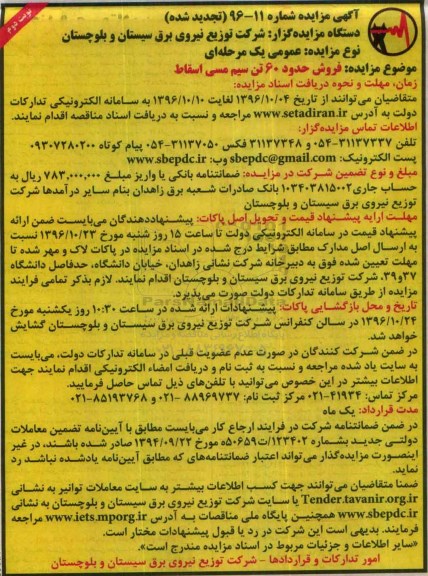 نوبت دوم
آگهی مزایده شماره ۱۱-۹۶ (تجدید شده)
دستگاه مزایده‌گزار: شرکت توزیع نیروی برق سیستان و بلوچستان
نوع مزایده: عمومی یک مرحله‌ای
موضوع مزایده: فروش حدود ۶۰ تن سیم مسی اسقاط
زمان، مهلت و نحوه دریافت اسناد مزایده:
متقاضیان می‌توانند از تاریخ ۱۳۹۶/۱۰/۰۴ لغایت ۱۳۹۶/۱۰/۱۰ به سامانه الکترونیکی تدارکات
دولت به آدرس www.setadiran.ir مراجعه و نسبت به دریافت اسناد مناقصه اقدام نمایند.
اطلاعات تماس مزایده‌گزار:
تلفن ۳۱۱۳۷۳۳۷-۰۵۴ و ۳۱۱۳۷۳۴۸ فکس ۳۱۱۳۷۰۵۰-۰۵۴ پیام کوتاه ۰۹۳۰۷۲۸۰۲۰۰
پست الکترونیک: sbepdc@gmail.com وب: www.sbepdc.ir
مبلغ و نوع تضمین شرکت در مزایده: ضمانتنامه بانکی یا واریز مبلغ ۷۸۳,۰۰۰,۰۰۰ ریال به
حساب جاری ۰۱۰۳۴۰۳۸۱۵۰۰۲ بانک صادرات شعبه برق زاهدان بنام سایر درآمدها شرکت
توزیع نیروی برق سیستان و بلوچستان
مهلت ارایه پیشنهاد قیمت و تحویل اصل پاکات: پیشنهاددهندگان می‌بایست ضمن ارائه
پیشنهاد قیمت در سامانه الکترونیکی دولت تا ساعت ۱۵ روز شنبه مورخ ۱۳۹۶/۱۰/۲۳ نسبت
به ارسال اصل مدارک مطابق شرایط درج شده در اسناد مزایده در پاکات لاک و مهر شده تا
مهلت تعیین شده فوق به دبیرخانه شرکت نشانی زاهدان، خیابان دانشگاه، حدفاصل دانشگاه
۳۷ و۳۹، شرکت توزیع نیروی برق سیستان و بلوچستان اقدام نمایند. لازم بذکر تمامی فرایند
مزایده از طریق سامانه تدارکات دولت صورت می‌پذیرد.
تاریخ و محل بازگشایی پاکات: پیشنهادات ارائه شده در ساعت ۱۰:۳۰ روز یکشنبه مورخ
۱۳۹۶/۱۰/۲۴ در سالن کنفرانس شرکت توزیع نیروی برق سیستان و بلوچستان گشایش
خواهد شد.
در ضمن شرکت کنندگان در صورت عدم عضویت قبلی در سامانه تدارکات دولت، می‌بایست
به سایت یاد شده مراجعه و نسبت به ثبت نام و دریافت امضاء الکترونیکی اقدام نمایند جهت
اطلاعات بیشتر در این خصوص می‌توانید با تلفن‌های ذیل تماس حاصل فرمایید.
مرکز تماس: ۴۱۹۳۴-۰۲۱ مرکز ثبت نام: ۸۸۹۶۹۷۳۷-۰۲۱ و ۸۵۱۹۳۷۶۸-۰۲۱
مدت قرارداد: یک ماه
در ضمن ضمانتنامه شرکت در فرایند ارجاع کار می‌بایست مطابق با آیین‌نامه تضمین معاملات
دولتی جدید بشماره ۱۲۳۴۰۲/ت۵۰۶۵۹ه مورخ ۱۳۹۴/۰۹/۲۲ صادر شده باشند، در غیر
اینصورت مزایده‌گذار می‌تواند اعتبار ضمانتنامه‌های که مطابق آیین‌نامه یادشده نباشد رد
نماید.
ضمنا متقاضیان می‌توانند جهت کسب اطلاعات بیشتر به سایت معاملات توانیر به نشانی
Tender.tavanir.org.ir یا سایت شرکت توزیع نیروی برق سیستان و بلوچستان به نشانی
www.sbepdc.ir همچنین پایگاه ملی مناقصات به آدرس www.iets.mporg.ir مراجعه
فرمایند. بدیهی است این شرکت در رد یا قبول پیشنهادات مختار است.
«سایر اطلاعات و جزئیات مربوط در اسناد مزایده مندرج است».
امور تدارکات و قراردادها - شرکت توزیع نیروی برق سیستان و بلوچستان